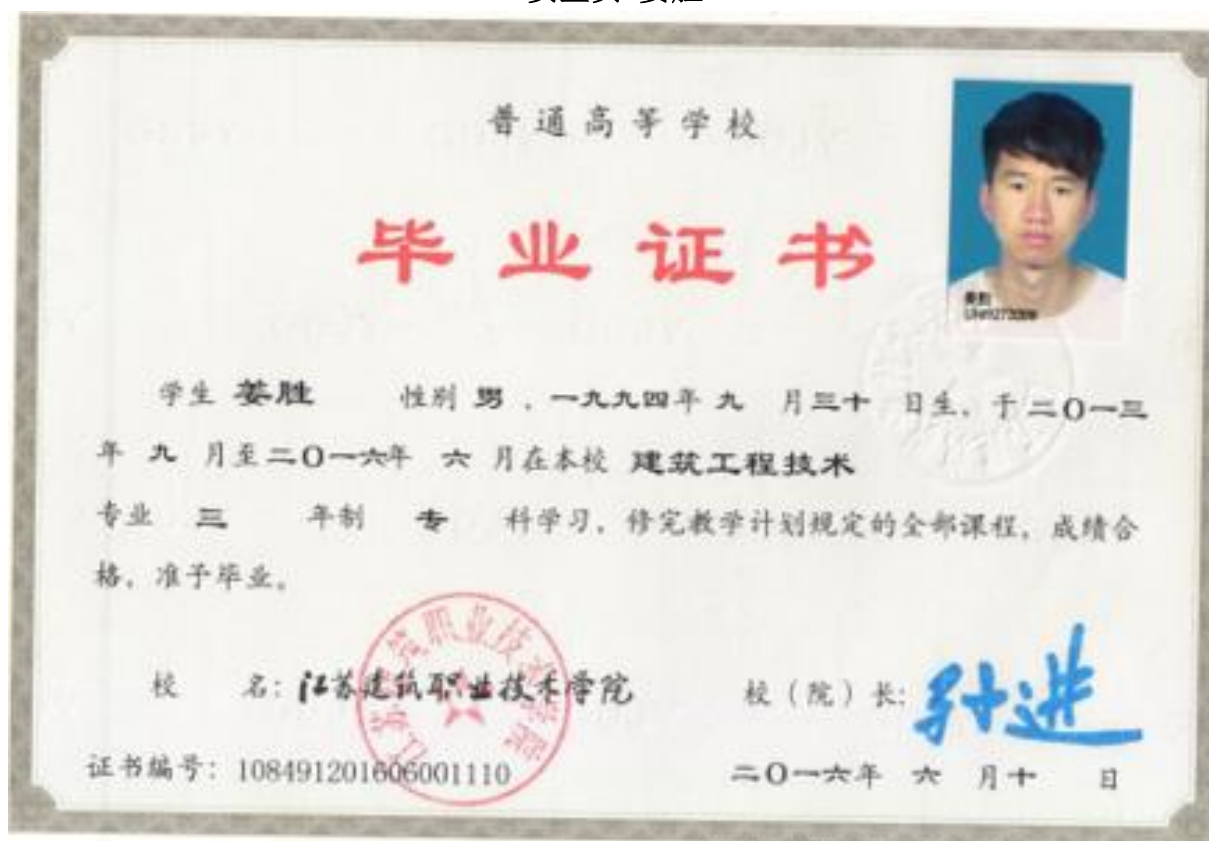 普通高等学校
毕业证书
学生 姜胜 性别 男，一九九四年 九 月三十 日生，于二〇一三
年 九 月至二〇一六年 六 月在本校 建筑工程技术
专业 三 年制 专 科学习，修完教学计划规定的全部课程，成绩合
格，准予毕业。
校 名：江苏建筑职业技术学院 校（院）长：孙进
证书编号：108491201606001110 二〇一六年 六 月十 日